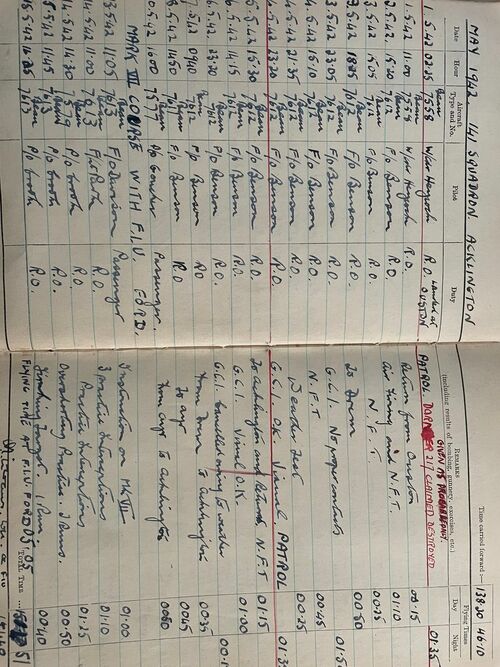 MAY 1942 141 SQUADRON ACKLINGTON
Date Hour Aircraft Type and No. Pilot Duty REMARKS (including results of bombing, gunnery, exercises, etc.) Flying Times Day Night
Time carried forward :— 138.20 46.10
GIVEN AS PROBABLE ONLY.
1.5.42 02.25 Beau 7558 W/Cdr Heycock R.O. Landed at OUSTON PATROL DORNIER 217 CLAIMED DESTROYED 01.35
1.5.42 11.00 Beau 7558 W/Cdr Heycock R.O. Return from Ouston 00.15
2.5.42 15.20 Beau F/O Benson R.O. Air Firing and N.F.T. 01.10
3.5.42 15.05 Beau 7612 F/O Benson R.O. N.F.T. 00.25
3.5.42 18.25 Beau F/O Benson R.O. To Drem 00.30
3.5.42 23.05 Beau 7612 F/O Benson R.O. G.C.I. No proper contacts
4.5.42 15.10 Beau 7612 F/O Benson R.O. N.F.T 00.45
4.5.42 21.35 Beau 7612 F/O Benson R.O. Weather Test 00.25
23.20 Beau 7612 F/O Benson R.O. G.C.I. OK Visual. PATROL
5.5.42 15.30 Beau 7612 F/O Benson R.O. To Acklington and Return N.F.T 01.15
6.5.42 14.15 Beau 7612 F/O Benson R.O. G.C.I. Visual O.K 01.00
6.5.42 23.20 Beau 7612 F/O Benson R.O. G.C.I. cancelled owing to weather
7.5.42 0940 Beau 7612 F/O Benson RO From Drem to Acklington 00.35
8.5.42 1450 Beau F/O Benson R.O To Ayr 00.45
10.5.42 1000 Beau 7577 P/O Passenger. From Ayr to Acklington 00.50
MARK VII COURSE WITH F.I.U. FORD.
13.5.42 11.05 Beau 7613 F/O Davison Passenger Instruction on Mk VII 01.00
14.5.42 11.00 Beau 7613 R.O. 3 Practice Interceptions 01.10
14.5.42 14.30 Beau P/O Booth R.O. Practice Interceptions 01.25
15.5.42 11.45 Beau 7613 P/O Booth R.O. Overshooting Practice. 2 Runs. 00.50
15.5.42 14.25 Beau 7613 P/O Booth R.O. 00.40
FLYING TIME AT F.I.U. FORD 05.05
TOTAL TIME